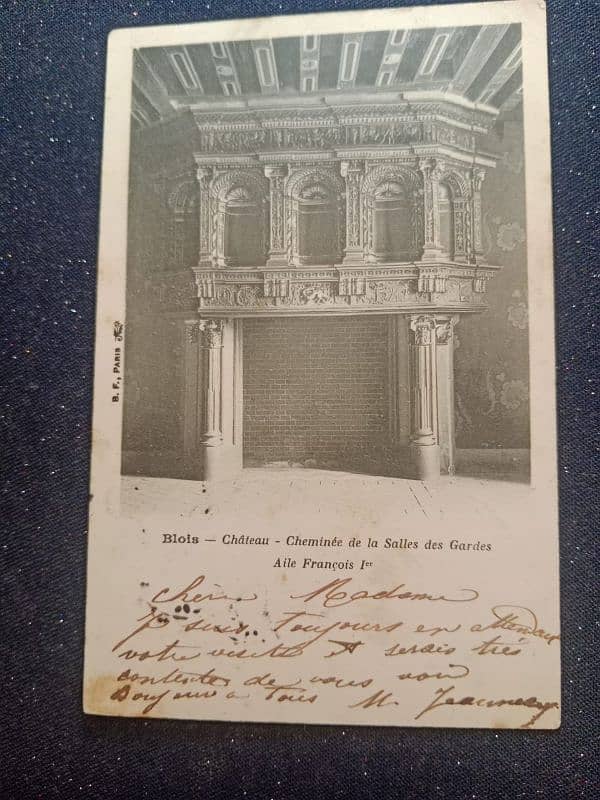 B. F., PARIS
Blois — Château - Cheminée de la Salles des Gardes
Aile François Ier
Chère Madame
Je suis toujours en attendant
votre visite et serais très
contente de vous voir
Bonjour a tous M.